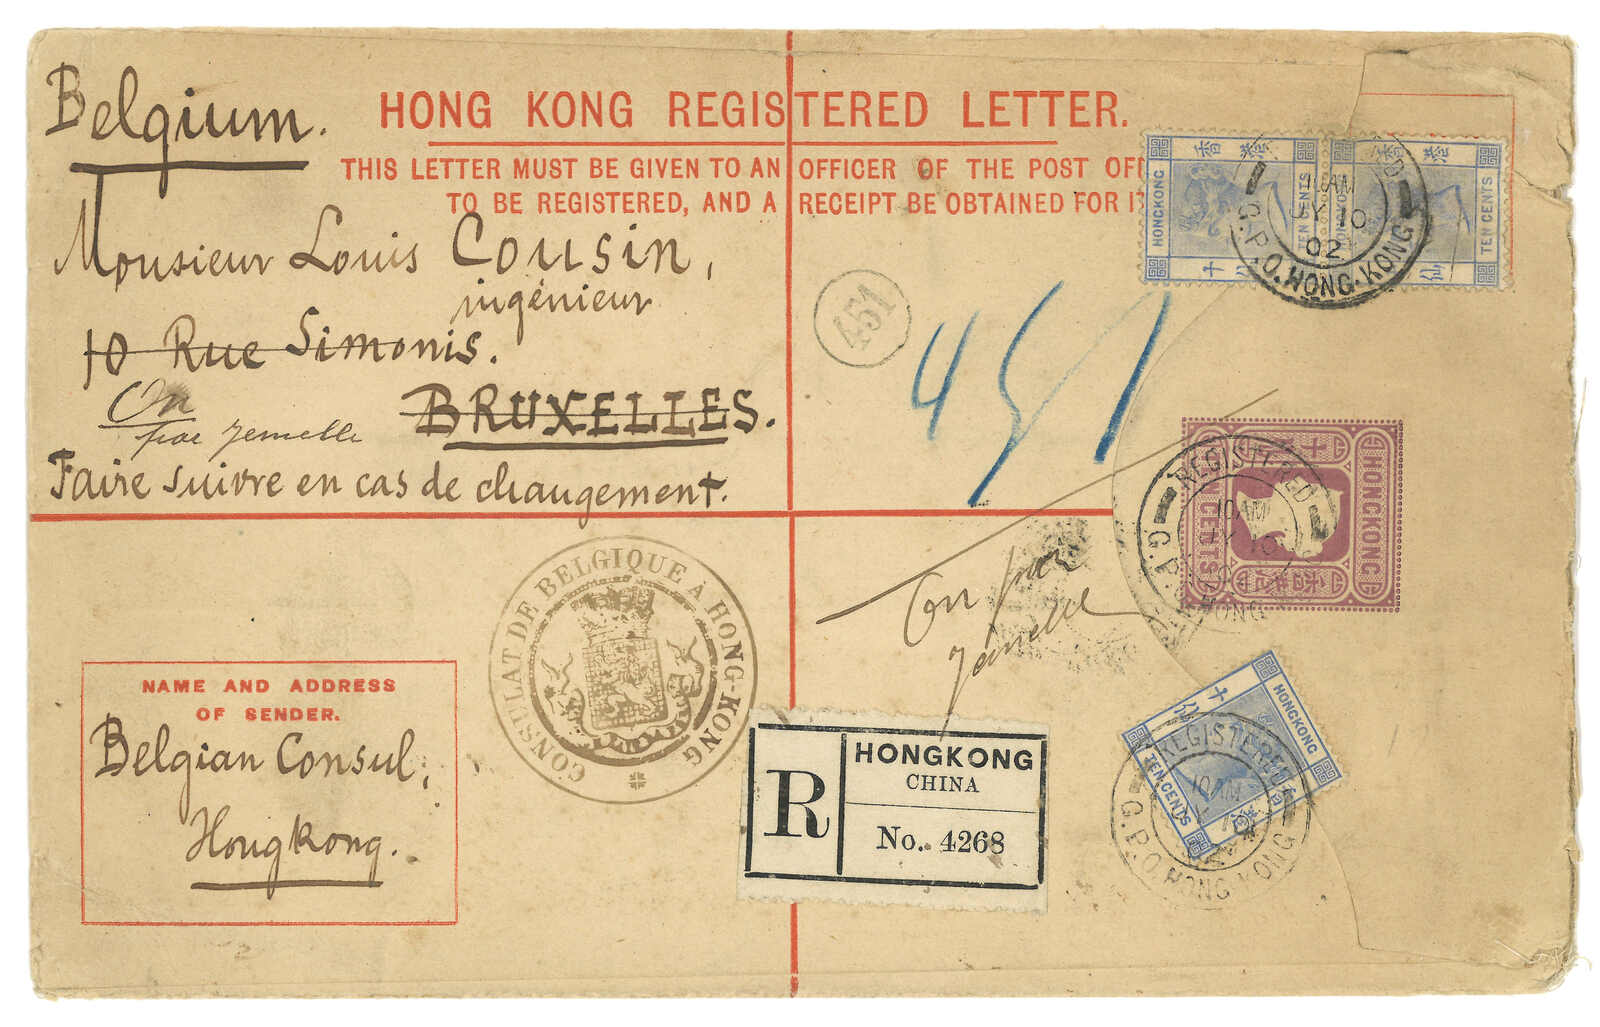 Belgium.
HONG KONG REGISTERED LETTER.
THIS LETTER MUST BE GIVEN TO AN OFFICER OF THE POST OFF
TO BE REGISTERED, AND A RECEIPT BE OBTAINED FOR IT
Monsieur Louis Cousin,
ingénieur
10 Rue Simonis.
BRUXELLES.
On
par Jemelle
Faire suivre en cas de changement.
451
451
HONGKONG
TEN CENTS
香港
TEN CENTS
G.P.O. HONG-KONG
10 AM
JY 10
02
HONGKONG
CENTS
REGISTERED
10 AM
JY 10
G.P.O. HONG KONG
On par
Jemelle
CONSULAT DE BELGIQUE À HONG-KONG
NAME AND ADDRESS
OF SENDER.
Belgian Consul,
Hongkong.
R
HONGKONG
CHINA
No. 4268
HONGKONG
TEN CENTS
REGISTERED
10 AM
G.P.O. HONG KONG